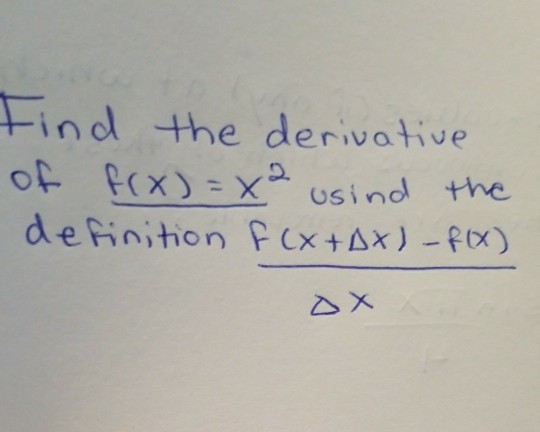 Find the derivative
of f(x) = x² usind the
definition f(x+Δx) - f(x)
Δx